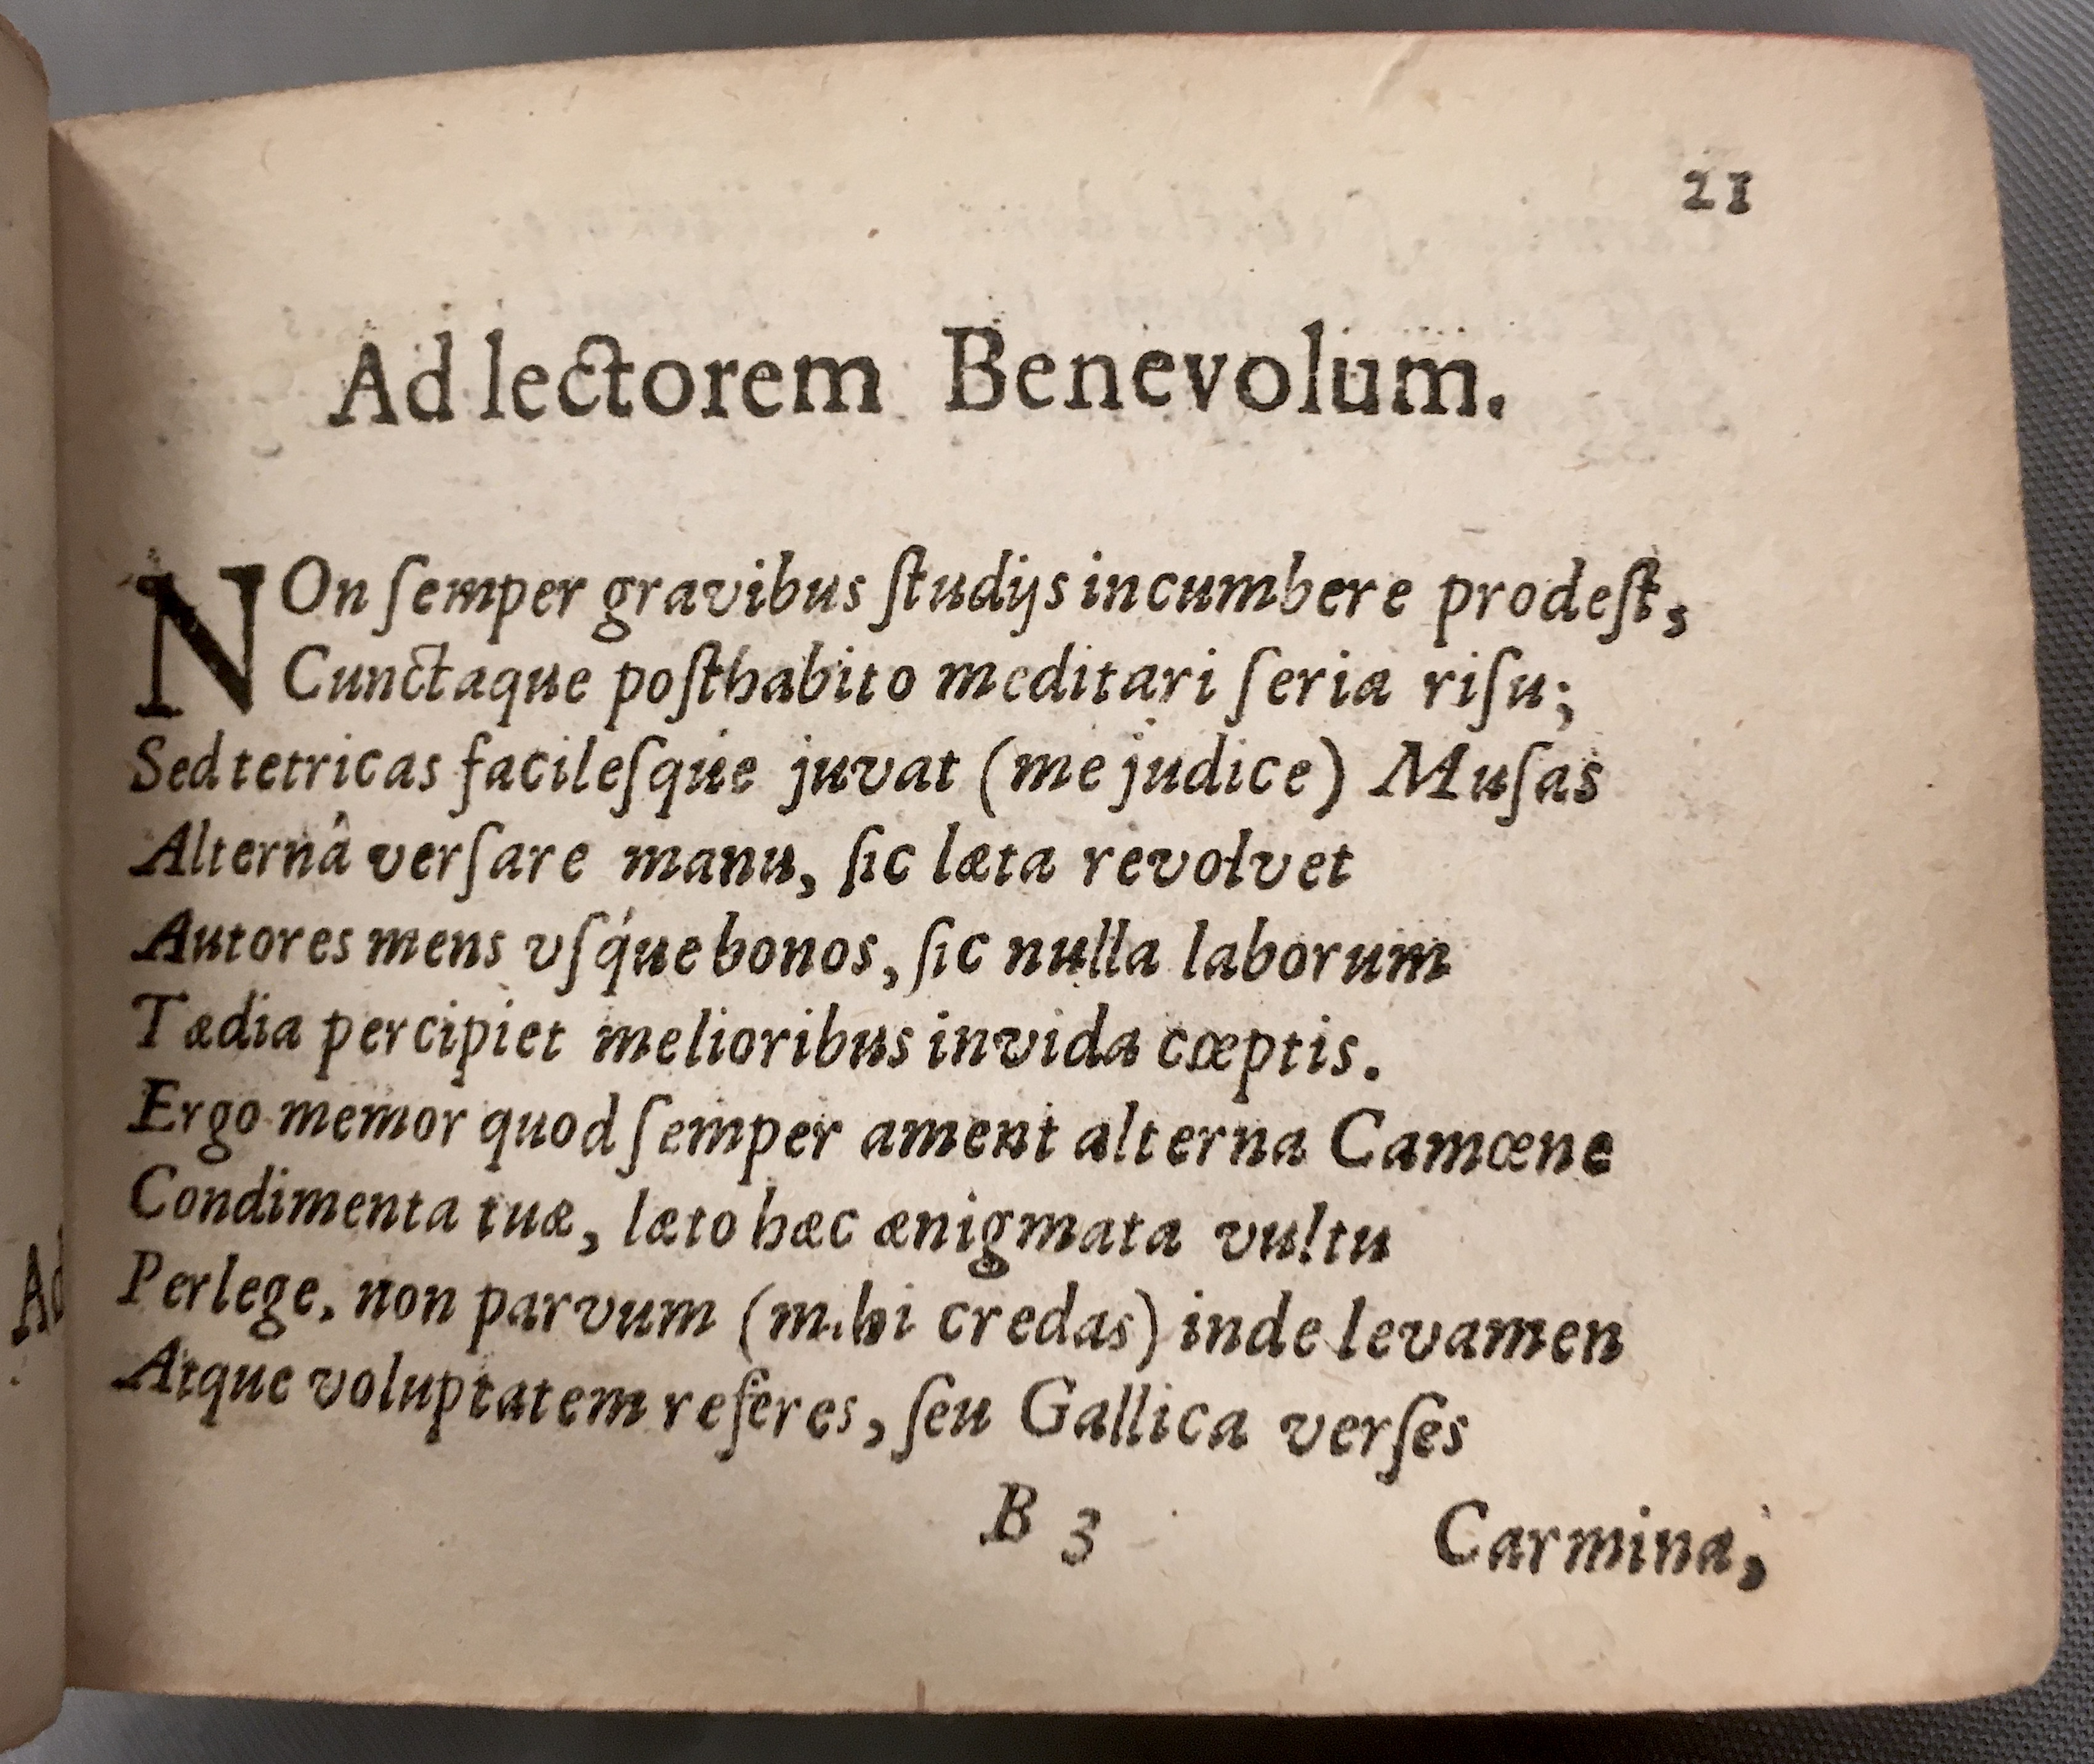 21
Ad lectorem Benevolum.
NOn ſemper gravibus ſtudijs incumbere prodeſt,
Cunctaque poſthabito meditari ſeria riſu;
Sed tetricas facileſque juvat (me judice) Muſas
Alternâ verſare manu, ſic læta revolvet
Autores mens vſq́ue bonos, ſic nulla laborum
Tædia percipiet melioribus invida cœptis.
Ergo memor quod ſemper ament alterna Camœne
Condimenta tuæ, læto hæc ænigmata vultu
Perlege, non parvum (mihi credas) inde levamen
Atque voluptatem referes, ſeu Gallica verſes
B 3 Carmina,
Ad